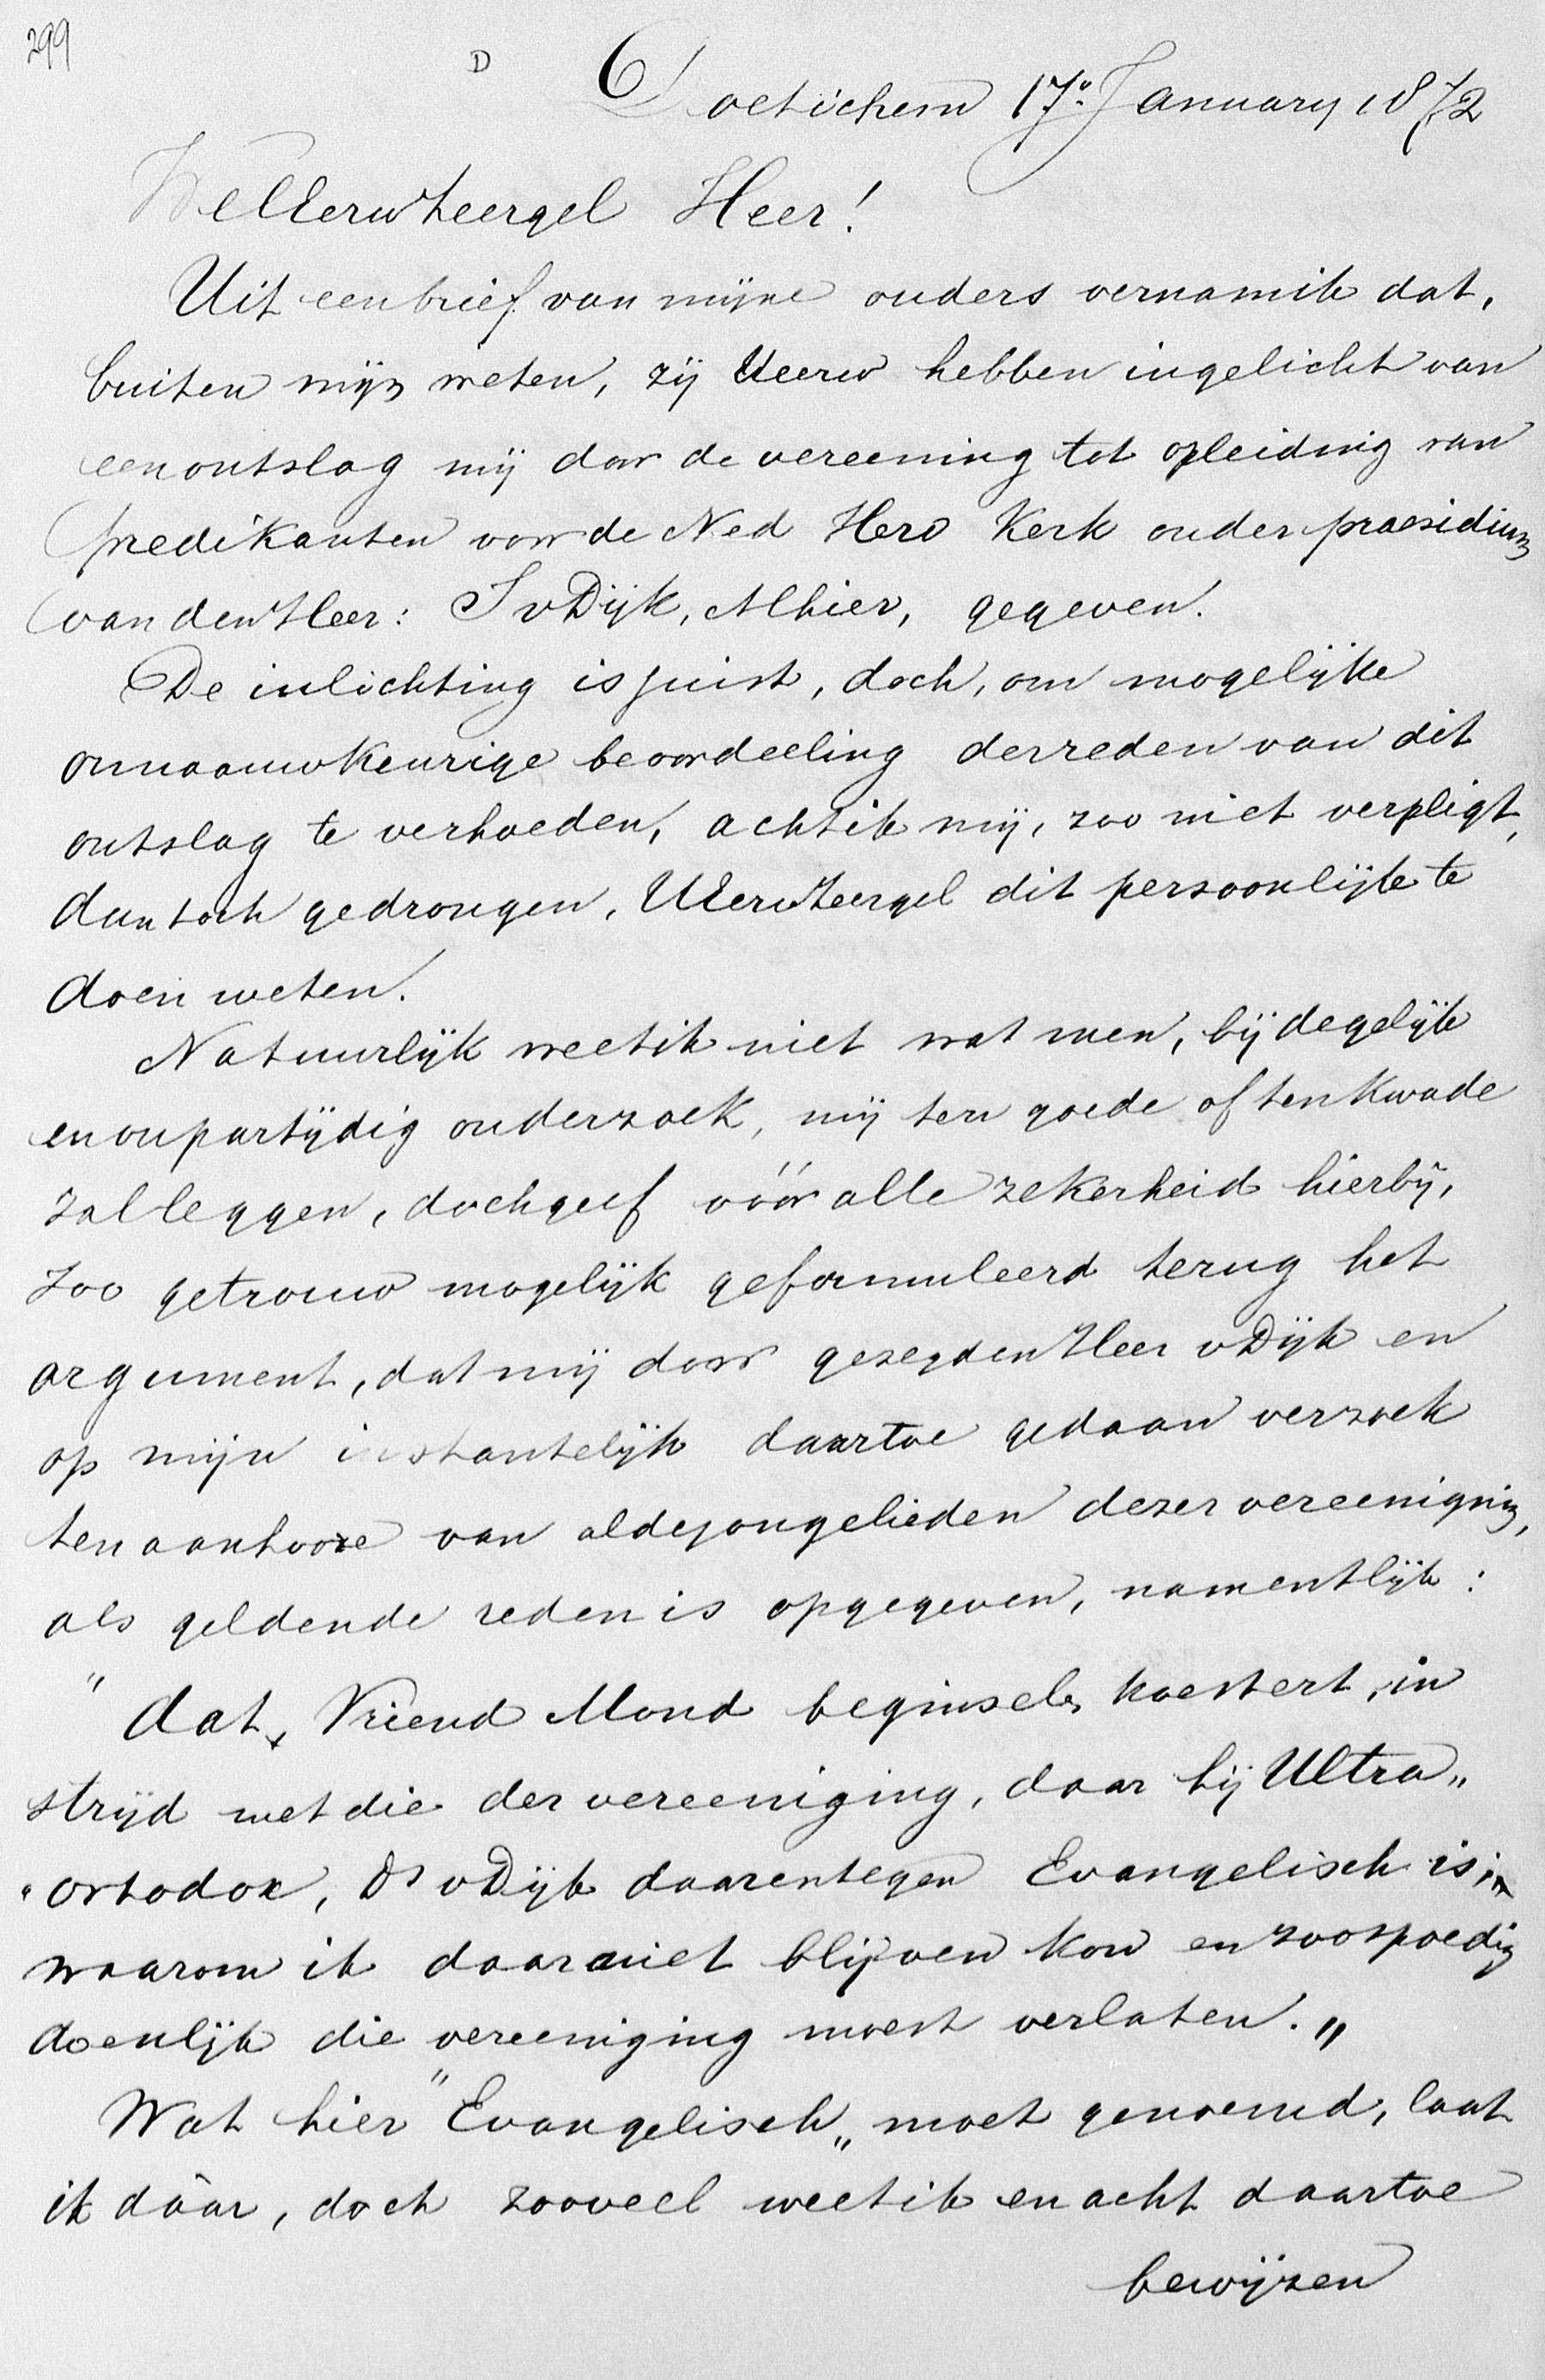 299
D
Doetichem 17e January 1872
WelEerwHeergel Heer!
Uit een brief van mijne ouders vernam ik dat,
buiten mijn weten, zij UEerw hebben ingelicht van
een ontslag mij door de vereening tot opleiding van
predikanten voor de Ned Herv Kerk onder praesidium
van den Heer: J v Dijk, Alhier, gegeven.
De inlichting is juist, doch, om mogelijke
onnaauwkeurige beoordeeling der reden van dit
ontslag te verhoeden, acht ik mij, zoo niet verpligt,
dan toch gedrongen, UEerwHeergel dit persoonlijk te
doen weten.
Natuurlijk weet ik niet wat men, bij degelijk
en onpartijdig onderzoek, mij ten goede of ten kwade
zal leggen, doch geef vóór alle zekerheid hierbij,
zoo getrouw mogelijk geformuleerd terug het
argument, dat mij door gezegden Heer v Dijk en
op mijn instantelijk daartoe gedaan verzoek
ten aanhoore van al de jongelieden dezer vereeniging,
als geldende reden is opgegeven, namentlijk:
"dat, Vriend Mond beginsels koestert, in
strijd met die der vereeniging, daar hij Ultra„
"ortodox, Ds v Dijk daarentegen Evangelisch is;
waarom ik daar niet blijven kon en zoo spoedig
doenlijk die vereeniging moest verlaten.„
Wat hier "Evangelisch„ moet genoemd, laat
ik dáar, doch zooveel weet ik en acht daartoe
bewijzen